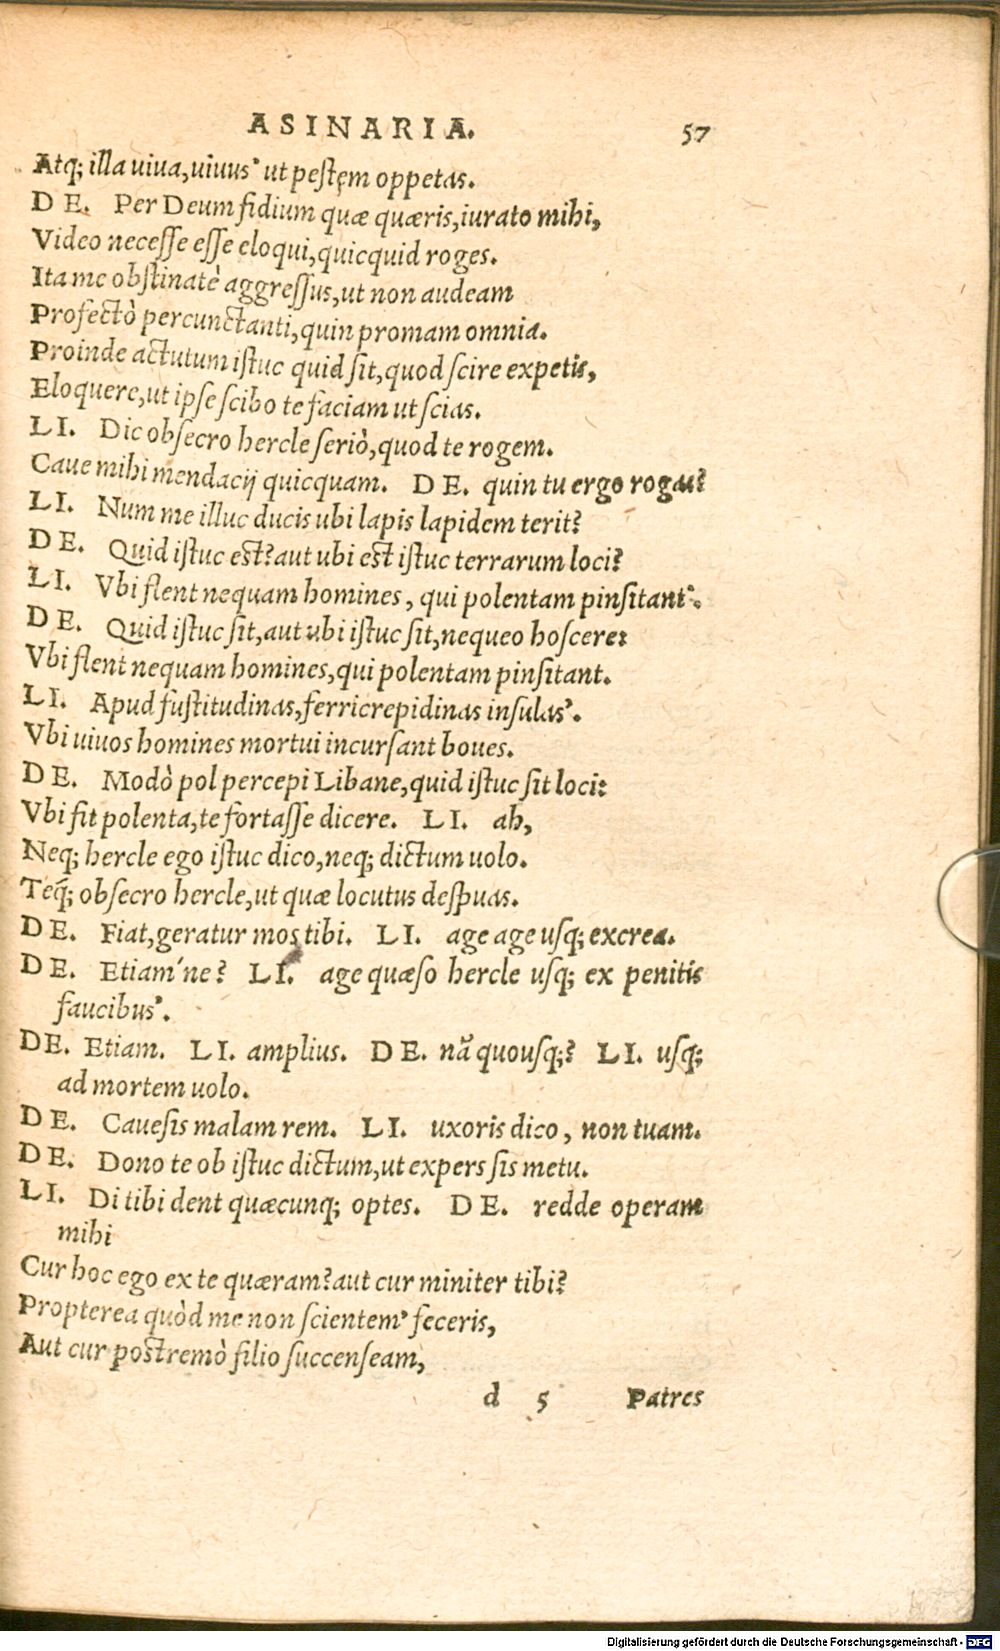 ASINARIA. 57
Atq; illa uiua, uiuus’ ut pestem oppetas.
DE. Per Deum fidium quæ quæris, iurato mihi,
Video necesse esse eloqui, quicquid roges.
Ita me obstinatè aggressus, ut non audeam
Profectò percunctanti, quin promam omnia.
Proinde actutum istuc quid sit, quod scire expetis,
Eloquere, ut ipse scibo te faciam ut scias.
LI. Dic obsecro hercle seriò, quod te rogem.
Caue mihi mendacij quicquam. DE. quin tu ergo rogas?
LI. Num me illuc ducis ubi lapis lapidem terit?
DE. Quid istuc est? aut ubi est istuc terrarum loci?
LI. Vbi flent nequam homines, qui polentam pinsitant’.
DE. Quid istuc sit, aut ubi istuc sit, nequeo noscere:
Vbi flent nequam homines, qui polentam pinsitant.
LI. Apud fustitudinas, ferricrepidinas insulas’.
Vbi uiuos homines mortui incursant boues.
DE. Modò pol percepi Libane, quid istuc sit loci:
Vbi fit polenta, te fortasse dicere. LI. ah,
Neq; hercle ego istuc dico, neq; dictum uolo.
Teq̃; obsecro hercle, ut quæ locutus despuas.
DE. Fiat, geratur mos tibi. LI. age age usq; excrea.
DE. Etiam’ne? LI. age quæso hercle usq; ex penitis
faucibus’.
DE. Etiam. LI. amplius. DE. nã quousq;? LI. usq;
ad mortem uolo.
DE. Cauesis malam rem. LI. uxoris dico, non tuam.
DE. Dono te ob istuc dictum, ut expers sis metu.
LI. Di tibi dent quæcunq; optes. DE. redde operam
mihi
Cur hoc ego ex te quæram? aut cur miniter tibi?
Propterea quòd me non scientem’ feceris,
Aut cur postremò filio succenseam,
d 5 Patres
Digitalisierung gefördert durch die Deutsche Forschungsgemeinschaft - DFG